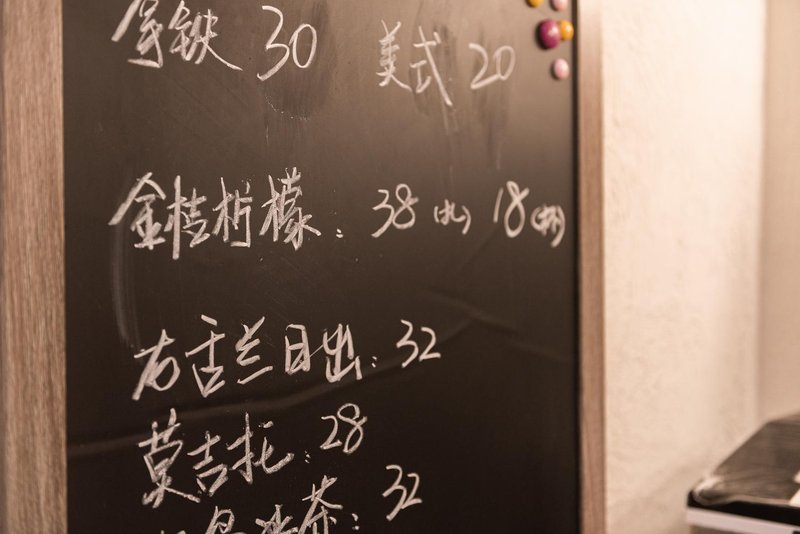 拿铁 30 美式 20
金桔柠檬: 38 (扎) 18 (杯)
龙舌兰日出: 32
莫吉托: 28
岛冰茶: 32